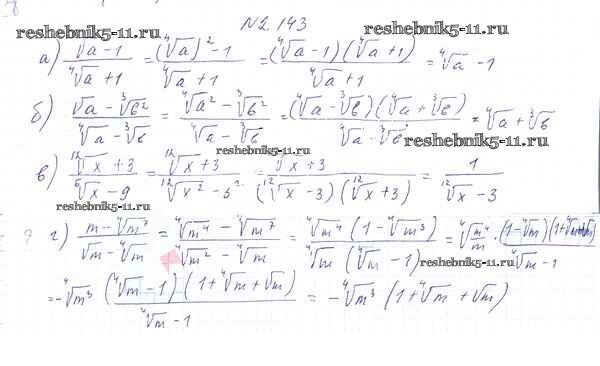 N2.143
reshebnik5-11.ru reshebnik5-11.ru
а) (√a − 1)/(⁴√a + 1) = ((⁴√a)² − 1)/(⁴√a + 1) = (⁴√a − 1)(⁴√a + 1)/(⁴√a + 1) = ⁴√a − 1
б) (√a − ³√b²)/(⁴√a − ³√b) = (⁴√a² − ³√b²)/(⁴√a − ³√b) = (⁴√a − ³√b)(⁴√a + ³√b)/(⁴√a − ³√b) = ⁴√a + ³√b
reshebnik5-11.ru reshebnik5-11.ru
в) (¹²√x + 3)/(⁶√x − 9) = (¹²√x + 3)/(¹²√x² − 3²) = (¹²√x + 3)/((¹²√x − 3)(¹²√x + 3)) = 1/(¹²√x − 3)
reshebnik5-11.ru
? г) (m − ⁴√m⁷)/(√m − ⁴√m) = (⁴√m⁴ − ⁴√m⁷)/(⁴√m² − ⁴√m) = ⁴√m⁴ (1 − ⁴√m³)/(⁴√m (⁴√m − 1)) = ⁴√(m⁴/m) · (1 − ⁴√m)(1 + ⁴√m + √m)/(⁴√m − 1)
reshebnik5-11.ru
= −⁴√m³ (⁴√m − 1)(1 + ⁴√m + √m)/(⁴√m − 1) = −⁴√m³ (1 + ⁴√m + √m)
reshebnik5-11.ru reshebnik5-11.ru